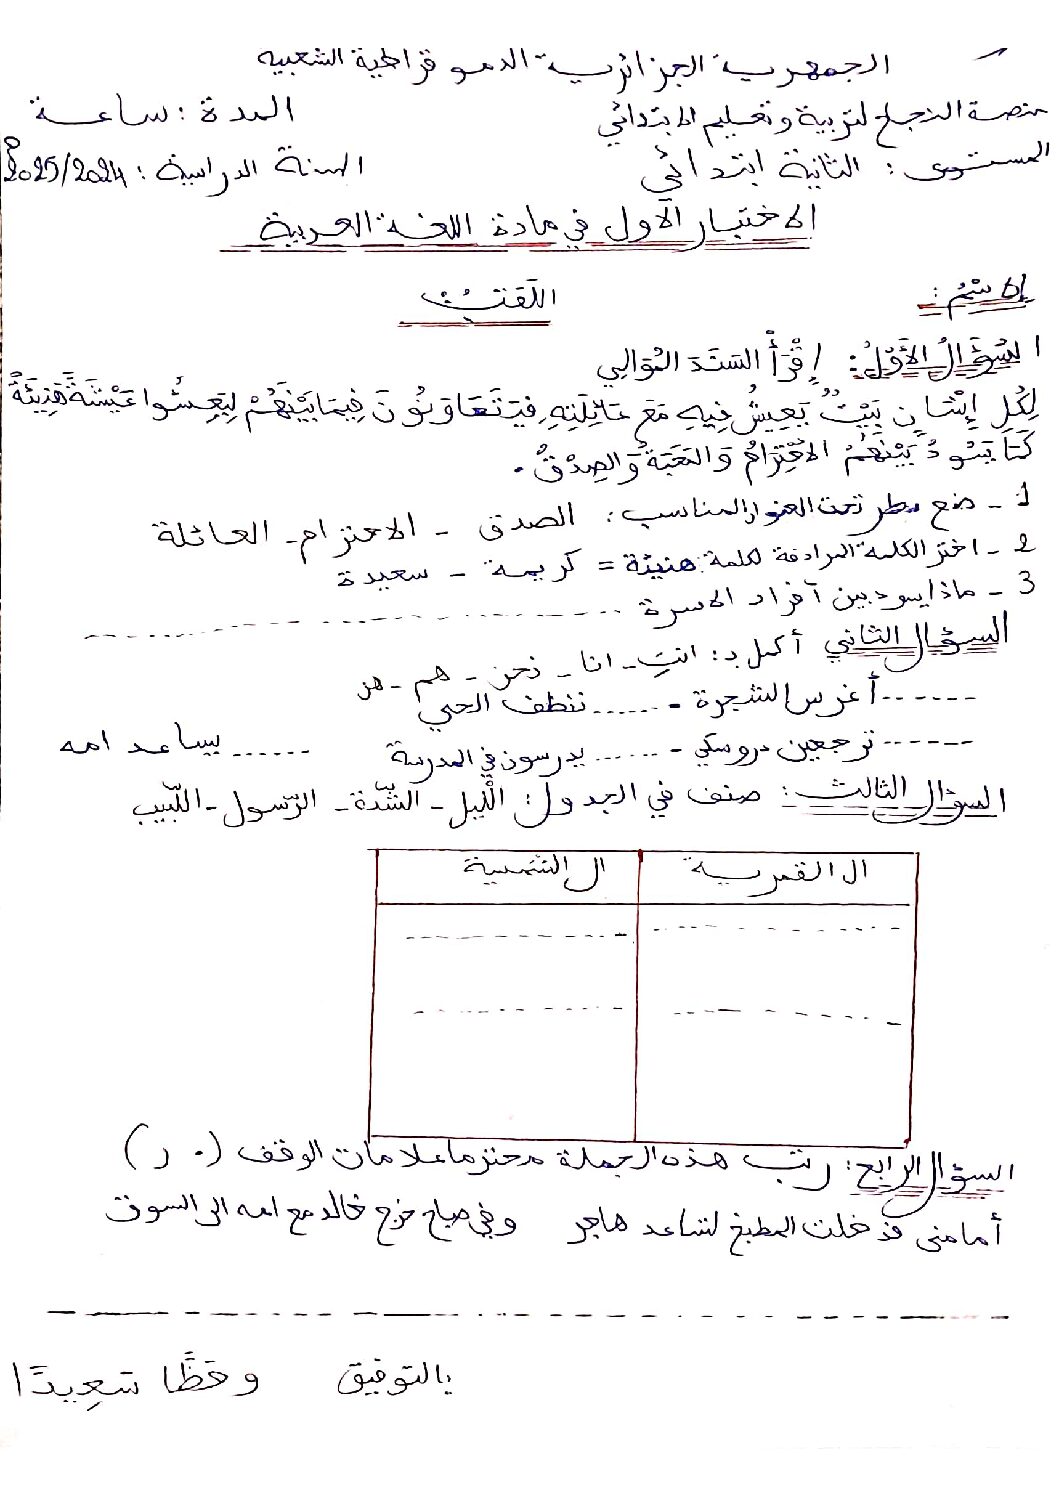 الجمهورية الجزائرية الدموقراطية الشعبيه
منصة النجاح لتربية وتعليم الابتدائي
المدة : ساعـــة
المستوى : الثانية ابتدائي
السنة الدراسية : 2025/2024
الاختبار الأول في مادة اللغـة العربية
الإسْمُ :
اللّقَبُ
السُؤَالُ الأَوّلُ : إِقْرَأْ السَنَدَ التُوَالِي
لِكُلِ إِنْسَانٍ بَيْتٌ يَعِيشُ فِيهِ مَعَ عَائِلَتِهِ فيَتَعَاوَنُونَ فِيمَا بَيْنَهُمْ لِيَعِسُوا عَيْشَةً هَنِيئَةً
كَمَا يَسُودُ بَيْنَهُمُ الاحْتِرَامُ وَالمَحَبَةُ وَالصِدْقُ .
1 - ضع سطر تحت العنوان المناسب : الصدق - الاحترام - العائلة
2 - اختر الكلمة المرادفة لكلمة هنيئة = كريمة - سعيدة
3 - ماذا يسود بين أفراد الاسرة ............
السؤال الثاني أكمل بـ : انتِ - انا - نحن - هم - هو
...... أغرس الشجرة - ...... ننظف الحي
...... ترجعين دروسكي - ...... يدرسون في المدرسة ...... يساعد امه
السؤال الثالث : صنف في الجدول : اللّيل - الشّدّة - الرّسول - اللّبيب
ال القمرية
ال الشمسية
السؤال الرابع : رتب هذه الجملة محترما علامات الوقف ( . ر )
أما منى فدخلت المطبخ لتساعد هاجر وفي صباح خرج خالد مع امه الى السوق
بالتوفيق وحَظًّا سَعِيدًا